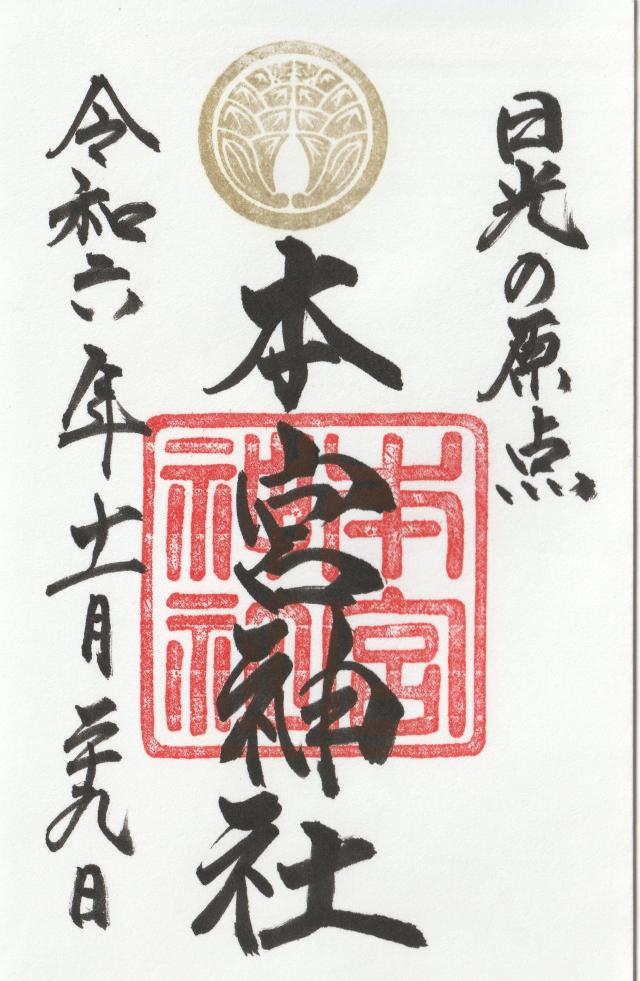 日光の原点
本宮神社
本宮神社
令和六年十一月二十九日